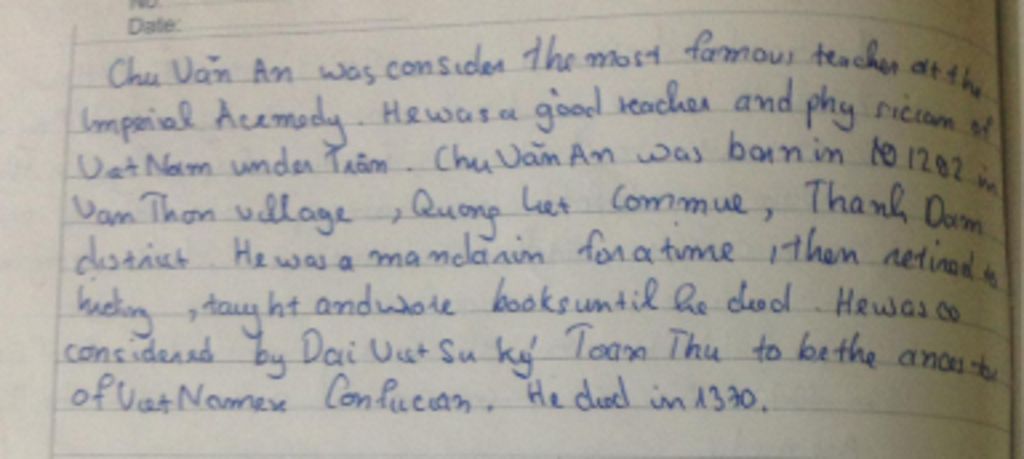 No.
Date:
Chu Văn An was consider the most famous teacher at the
Imperial Acemedy. He was a good teacher and phy siciam of
Viet Nam under Trần. Chu Văn An was born in 1292 in
Van Thon village, Quang Liet Commue, Thanh Dam
district He was a mandarin for a time, then retired to
hiding, taught and wrote books until he died. He was co
considered by Dai Viet Su Ký Toan Thu to be the ancestor
of Viet Namese Confucian. He died in 1370.